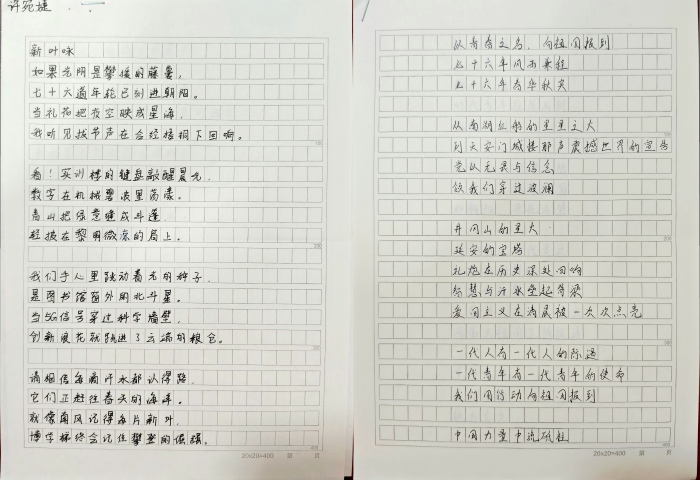 许宛婕
新叶咏
如果光阴是攀缘的藤蔓，
七十六道年轮已刻进朝阳。
当礼花把夜空映成星海，
我听见拔节声在合经梧桐下回响。
看！实训楼的键盘敲醒晨光，
数字在机械碧波里荡漾。
青山把绿意缝成斗篷
轻披在黎明微凉的肩上。
我们手心里跳动着光的种子，
是图书馆窗外的北斗星。
当5G信号穿过科学墙壁，
创新浪花就跳进了云端的粮仓。
请相信每滴汗水都认得路，
它们正赶往春天的海洋。
就像南风记得每片新叶，
博学梯终会记住攀登的倔强。
20×20=400 第 页
从青春之名，向祖国报到
七十六年风雨兼程
七十六年春华秋实
从南湖红船的星星之火
到天安门城楼那声震撼世界的宣告
党以无畏与信念
领我们穿过波澜
井冈山的星火
延安的宝塔
礼炮在历史深处回响
智慧与汗水垒起脊梁
爱国主义在为民被一次次点亮
一代人有一代人的际遇
一代青年有一代青年的使命
我们用行动向祖国报到
中国力量中流砥柱
20×20=400 第 页